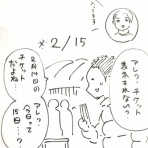 ※2/15
アレ?チケット
表示されない?
2月14日の
チケット
だよね…
アレッ
今日って
15日…?